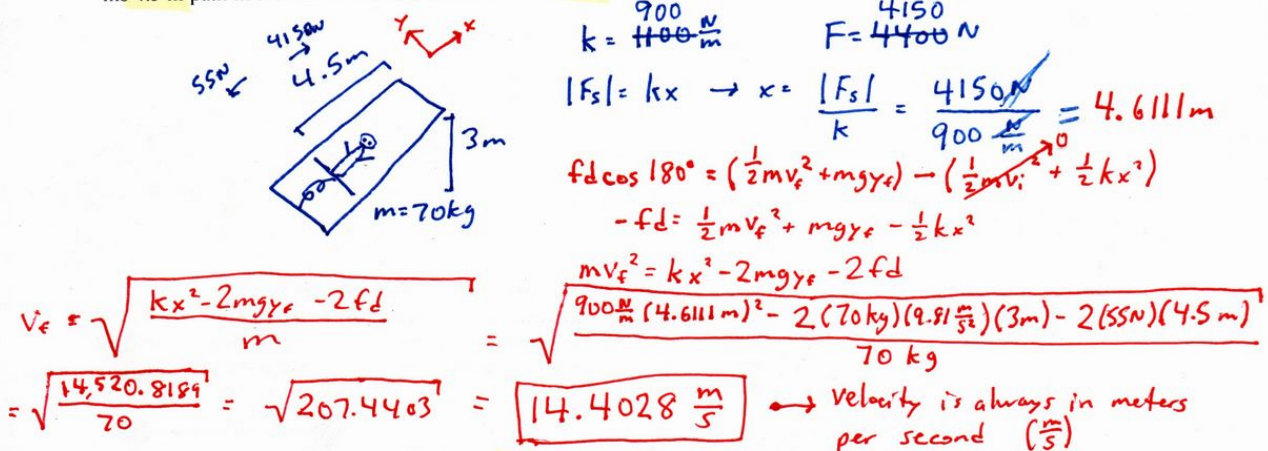 900 4150
k = 1100 N/m F = 4400 N
4150N
55N 4.5m
y x
|Fs| = kx → x = |Fs|/k = 4150N/900 N/m = 4.6111m
3m
m=70kg
fd cos 180° = (½mvf² + mgyf) − (½mvi² + ½kx²)
0
−fd = ½mvf² + mgyf − ½kx²
mvf² = kx² − 2mgyf − 2fd
vf = √(kx² − 2mgyf − 2fd / m) = √(900 N/m (4.6111m)² − 2(70kg)(9.81 m/s²)(3m) − 2(55N)(4.5m) / 70 kg)
= √(14,520.8189/70) = √207.4403 = 14.4028 m/s → velocity is always in meters
per second (m/s)